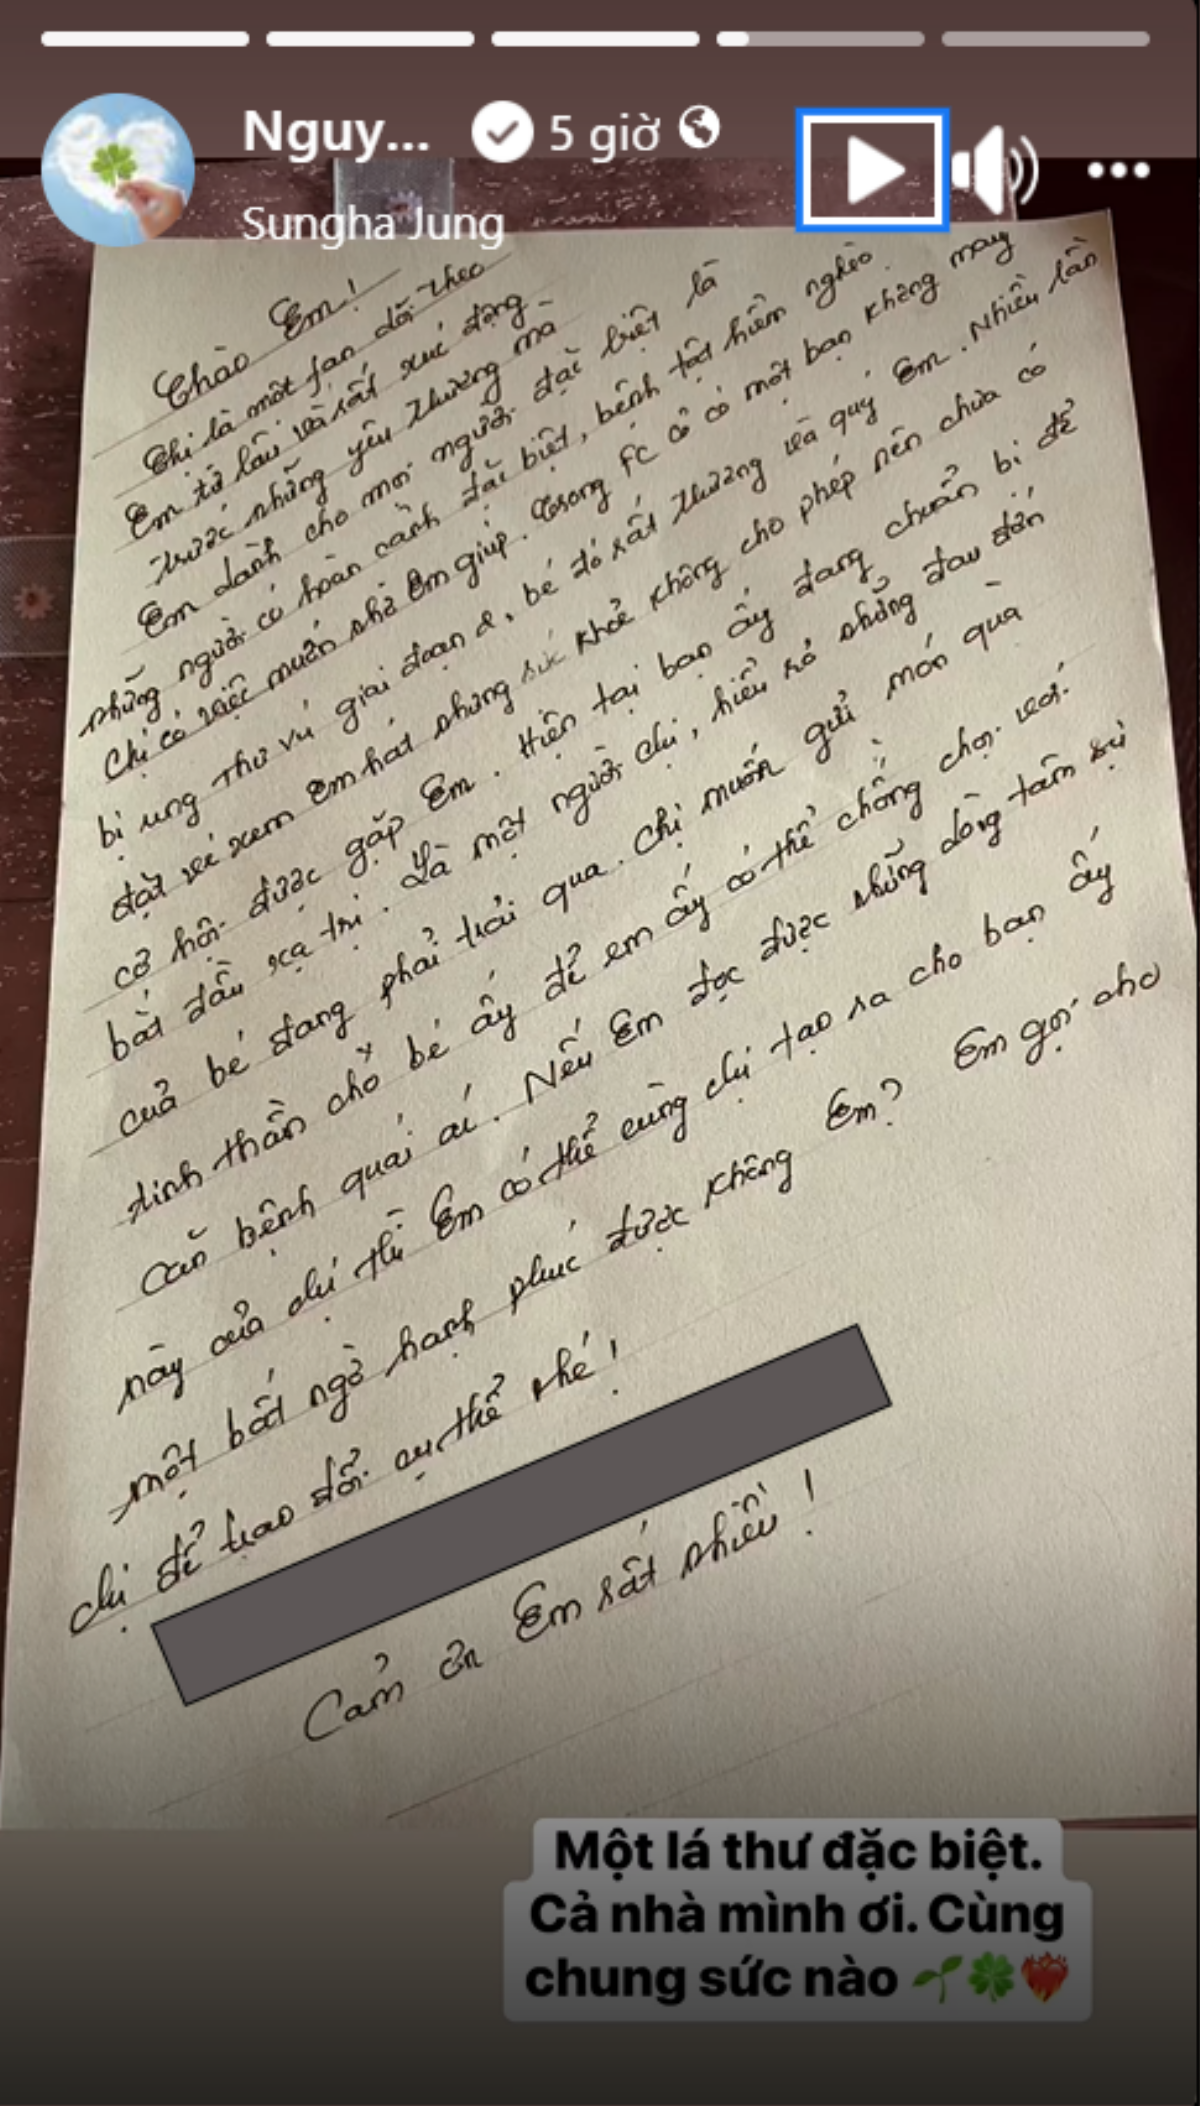 Nguy... 5 giờ
Sungha Jung
Chào Em!
Chị là một fan dõi theo
Em từ lâu và rất xúc động
trước những yêu thương mà
Em dành cho mọi người đặc biệt là
những người có hoàn cảnh đặc biệt, bệnh tật hiểm nghèo.
Chị có việc muốn nhờ Em giúp. Trong FC có có một bạn không may
bị ung thư vú giai đoạn 2, bé đó rất thương và quý Em. Nhiều lần
đặt vé xem Em hát nhưng sức khoẻ không cho phép nên chưa có
cơ hội được gặp Em. Hiện tại bạn ấy đang chuẩn bị để
bắt đầu xạ trị. Là một người chị, hiểu rõ những đau đớn
của bé đang phải trải qua. Chị muốn gửi món quà
tinh thần cho bé ấy để em ấy có thể chống chọi với
căn bệnh quái ác. Nếu Em đọc được những dòng tâm sự
này của chị thì Em có thể cùng chị tạo ra cho bạn ấy
một bất ngờ hạnh phúc được không Em? Em gọi cho
chị để trao đổi cụ thể nhé!
Cảm ơn Em rất nhiều!
Một lá thư đặc biệt.
Cả nhà mình ơi. Cùng
chung sức nào 🌱🍀❤️‍🔥